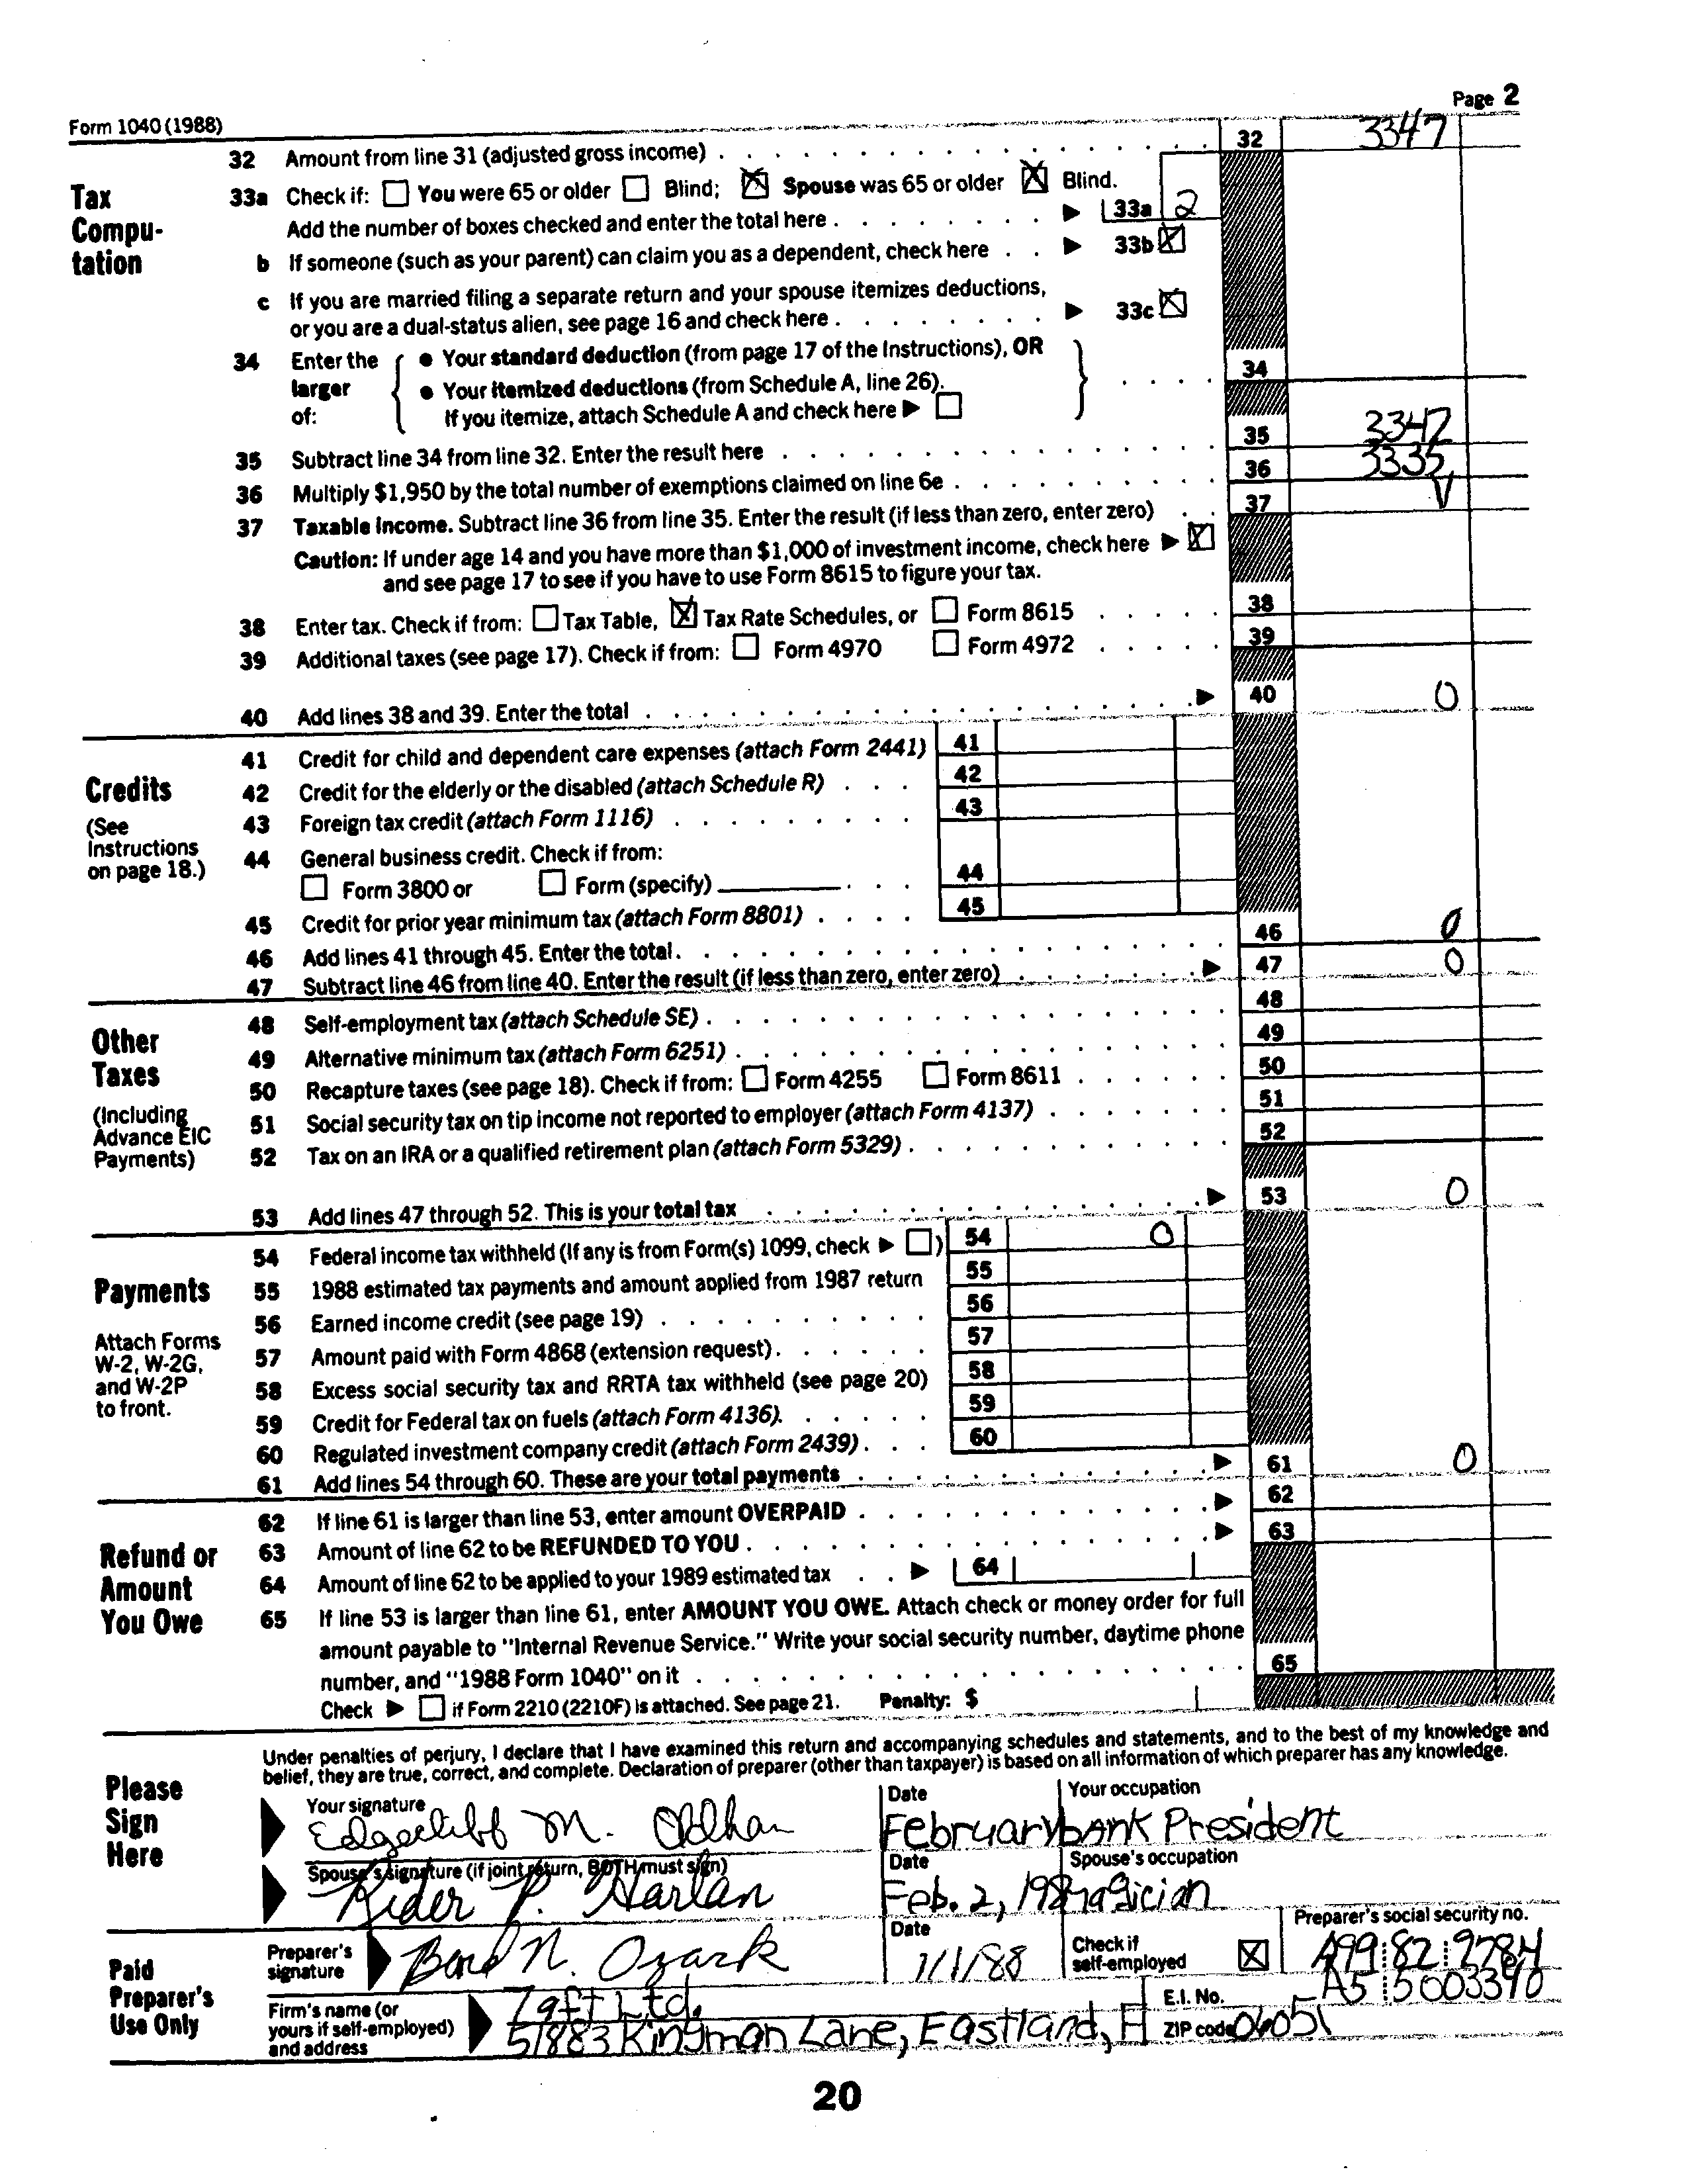 Form 1040 (1988) Page 2
Tax Compu-tation
32 Amount from line 31 (adjusted gross income) 32 3347
33a Check if: You were 65 or older Blind; Spouse was 65 or older Blind.
Add the number of boxes checked and enter the total here 33a 2
b If someone (such as your parent) can claim you as a dependent, check here 33b
c If you are married filing a separate return and your spouse itemizes deductions,
or you are a dual-status alien, see page 16 and check here 33c
34 Enter the larger of: • Your standard deduction (from page 17 of the Instructions), OR 34
• Your itemized deductions (from Schedule A, line 26).
If you itemize, attach Schedule A and check here
35 Subtract line 34 from line 32. Enter the result here 35 3347
36 Multiply $1,950 by the total number of exemptions claimed on line 6e 36 3335
37 Taxable income. Subtract line 36 from line 35. Enter the result (if less than zero, enter zero) 37
Caution: If under age 14 and you have more than $1,000 of investment income, check here
and see page 17 to see if you have to use Form 8615 to figure your tax.
38 Enter tax. Check if from: Tax Table, Tax Rate Schedules, or Form 8615 38
39 Additional taxes (see page 17). Check if from: Form 4970 Form 4972 39
40 Add lines 38 and 39. Enter the total 40 0
Credits
(See Instructions on page 18.)
41 Credit for child and dependent care expenses (attach Form 2441) 41
42 Credit for the elderly or the disabled (attach Schedule R) 42
43 Foreign tax credit (attach Form 1116) 43
44 General business credit. Check if from:
Form 3800 or Form (specify) 44
45 Credit for prior year minimum tax (attach Form 8801) 45
46 Add lines 41 through 45. Enter the total. 46 0
47 Subtract line 46 from line 40. Enter the result (if less than zero, enter zero) 47 0
Other Taxes
(Including Advance EIC Payments)
48 Self-employment tax (attach Schedule SE) 48
49 Alternative minimum tax (attach Form 6251) 49
50 Recapture taxes (see page 18). Check if from: Form 4255 Form 8611 50
51 Social security tax on tip income not reported to employer (attach Form 4137) 51
52 Tax on an IRA or a qualified retirement plan (attach Form 5329) 52
53 Add lines 47 through 52. This is your total tax 53 0
Payments
Attach Forms W-2, W-2G, and W-2P to front.
54 Federal income tax withheld (If any is from Form(s) 1099, check ) 54 0
55 1988 estimated tax payments and amount applied from 1987 return 55
56 Earned income credit (see page 19) 56
57 Amount paid with Form 4868 (extension request) 57
58 Excess social security tax and RRTA tax withheld (see page 20) 58
59 Credit for Federal tax on fuels (attach Form 4136). 59
60 Regulated investment company credit (attach Form 2439) 60
61 Add lines 54 through 60. These are your total payments 61 0
Refund or Amount You Owe
62 If line 61 is larger than line 53, enter amount OVERPAID 62
63 Amount of line 62 to be REFUNDED TO YOU 63
64 Amount of line 62 to be applied to your 1989 estimated tax 64
65 If line 53 is larger than line 61, enter AMOUNT YOU OWE. Attach check or money order for full
amount payable to "Internal Revenue Service." Write your social security number, daytime phone
number, and "1988 Form 1040" on it 65
Check if Form 2210 (2210F) is attached. See page 21. Penalty: $
Please Sign Here
Under penalties of perjury, I declare that I have examined this return and accompanying schedules and statements, and to the best of my knowledge and
belief, they are true, correct, and complete. Declaration of preparer (other than taxpayer) is based on all information of which preparer has any knowledge.
Your signature Date Your occupation
Edgecliff M. Oldhan February bank President
Spouse's signature (if joint return, BOTH must sign) Date Spouse's occupation
Kider P. Harlan Feb. 2, 198 magician
Paid Preparer's Use Only
Preparer's signature Date Check if self-employed Preparer's social security no.
Bond N. Ozark 1/1/88 A99:82:9784
Firm's name (or yours if self-employed) and address
Taft Ltd. E.I. No. A5 5003390
51883 Kingman Lane, Eastland, ZIP code 06051
20